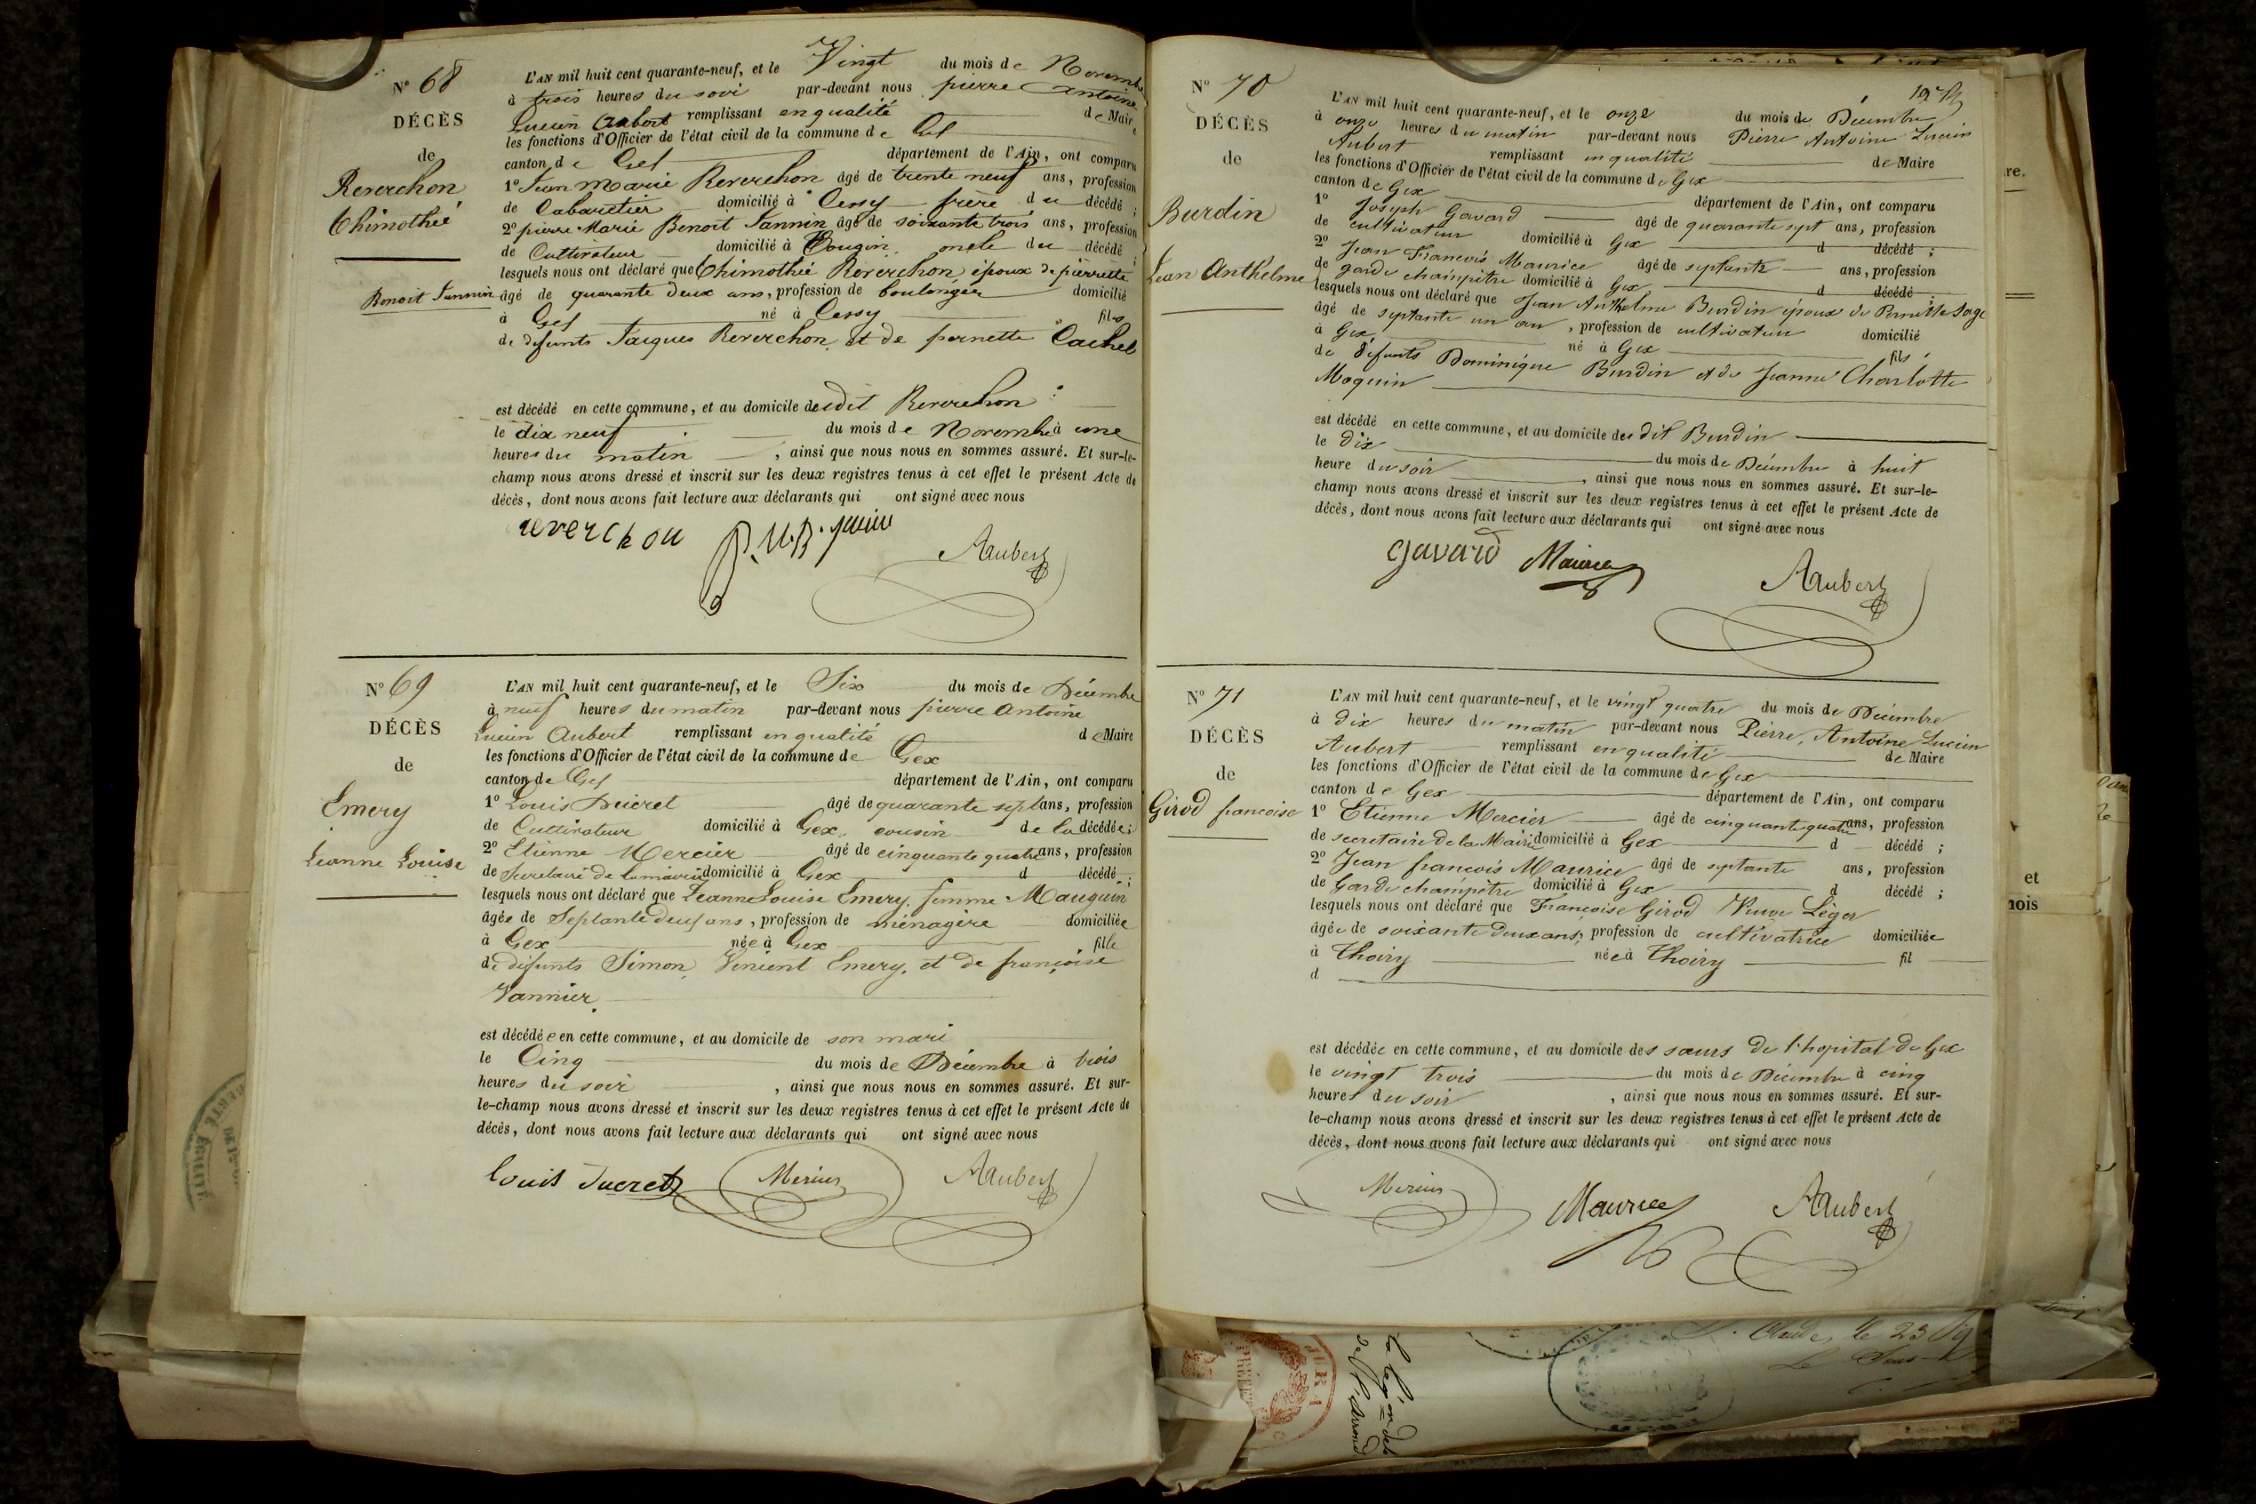 N° 68
DÉCÈS
de
Reverchon
Thimothié
Benoit Jannin
L'AN mil huit cent quarante-neuf, et le Vingt du mois de Novembre
à trois heures du soir par-devant nous pierre Antoine
Lucien Aubert remplissant en qualité de Maire
les fonctions d'Officier de l'état civil de la commune de Gex
canton de Gex département de l'Ain, ont comparu
1° Jean Marie Reverchon âgé de trente neuf ans, profession
de Cabaretier domicilié à Cessy frère du décédé ;
2° pierre Marie Benoit Jannin âgé de soixante trois ans, profession
de Cultivateur domicilié à Tougin oncle du décédé ;
lesquels nous ont déclaré que Thimothié Reverchon époux de pierrette
âgé de quarante deux ans, profession de boulonger domicilié
à Gex né à Cessy fils
de defunts Jacques Reverchon et de pernette Cachel
est décédé en cette commune, et au domicile dudit Reverchon
le dix neuf du mois de Novembre à une
heures du matin , ainsi que nous nous en sommes assuré. Et sur-le-
champ nous avons dressé et inscrit sur les deux registres tenus à cet effet le présent Acte de
décès, dont nous avons fait lecture aux déclarants qui ont signé avec nous
reverchon P.M.B. janin
AAubert
N° 69
DÉCÈS
de
Emery
Jeanne Louise
L'AN mil huit cent quarante-neuf, et le Six du mois de Décembre
à neuf heures du matin par-devant nous pierre Antoine
Lucien Aubert remplissant en qualité de Maire
les fonctions d'Officier de l'état civil de la commune de Gex
canton de Gex département de l'Ain, ont comparu
1° Louis Ducret âgé de quarante sept ans, profession
de Cultivateur domicilié à Gex, cousin de la décédée ;
2° Etienne Mercier âgé de cinquante quatre ans, profession
de Secretaire de la mairie domicilié à Gex d décédé ;
lesquels nous ont déclaré que Jeanne Louise Emery, femme Mauguin
âgée de Septante deux ans, profession de ménagère domiciliée
à Gex née à Gex fille
de défunts Simon Vincent Emery, et de françoise
Vannier
est décédée en cette commune, et au domicile de son mari
le Cinq du mois de Décembre à trois
heures du soir , ainsi que nous nous en sommes assuré. Et sur-
le-champ nous avons dressé et inscrit sur les deux registres tenus à cet effet le présent Acte de
décès, dont nous avons fait lecture aux déclarants qui ont signé avec nous
louis ducret Mercier AAubert
N° 70
DÉCÈS
de
Burdin
Jean Anthelme
L'AN mil huit cent quarante-neuf, et le onze du mois de Décembre
à onze heures du matin par-devant nous Pierre Antoine Lucien
Aubert remplissant en qualité de Maire
les fonctions d'Officier de l'état civil de la commune de Gex
canton de Gex département de l'Ain, ont comparu
1° Joseph Gavard âgé de quarante sept ans, profession
de cultivateur domicilié à Gex d décédé ;
2° Jean François Maurice âgé de septante ans, profession
de garde champêtre domicilié à Gex d décédé ;
lesquels nous ont déclaré que Jean Anthelme Burdin époux de Pernette Sage
âgé de septante un an , profession de cultivateur domicilié
à Gex né à Gex fils
de défunts Dominique Burdin et de Jeanne Charlotte
Moquin
est décédé en cette commune, et au domicile du dit Burdin
le dix du mois de Décembre à huit
heure du soir , ainsi que nous nous en sommes assuré. Et sur-le-
champ nous avons dressé et inscrit sur les deux registres tenus à cet effet le présent Acte de
décès, dont nous avons fait lecture aux déclarants qui ont signé avec nous
gavard Maurice
AAubert
N° 71
DÉCÈS
de
Girod françoise
L'AN mil huit cent quarante-neuf, et le vingt quatre du mois de Décembre
à dix heures du matin par-devant nous Pierre, Antoine Lucien
Aubert remplissant en qualité de Maire
les fonctions d'Officier de l'état civil de la commune de Gex
canton de Gex département de l'Ain, ont comparu
1° Etienne Mercier âgé de cinquante quatre ans, profession
de secretaire de la Mairie domicilié à Gex d décédé ;
2° Jean françois Maurice âgé de septante ans, profession
de Garde champêtre domicilié à Gex d décédé ;
lesquels nous ont déclaré que Françoise Girod Veuve Léger
âgée de soixante deux ans, profession de cultivatrice domiciliée
à Thoiry née à Thoiry fil
d
est décédée en cette commune, et au domicile des sœurs de l'hopital de Gex
le vingt trois du mois de Décembre à cinq
heures du soir , ainsi que nous nous en sommes assuré. Et sur-
le-champ nous avons dressé et inscrit sur les deux registres tenus à cet effet le présent Acte de
décès, dont nous avons fait lecture aux déclarants qui ont signé avec nous
Mercier Maurice AAubert
re.
et
nois
JURA
Claude, le 23